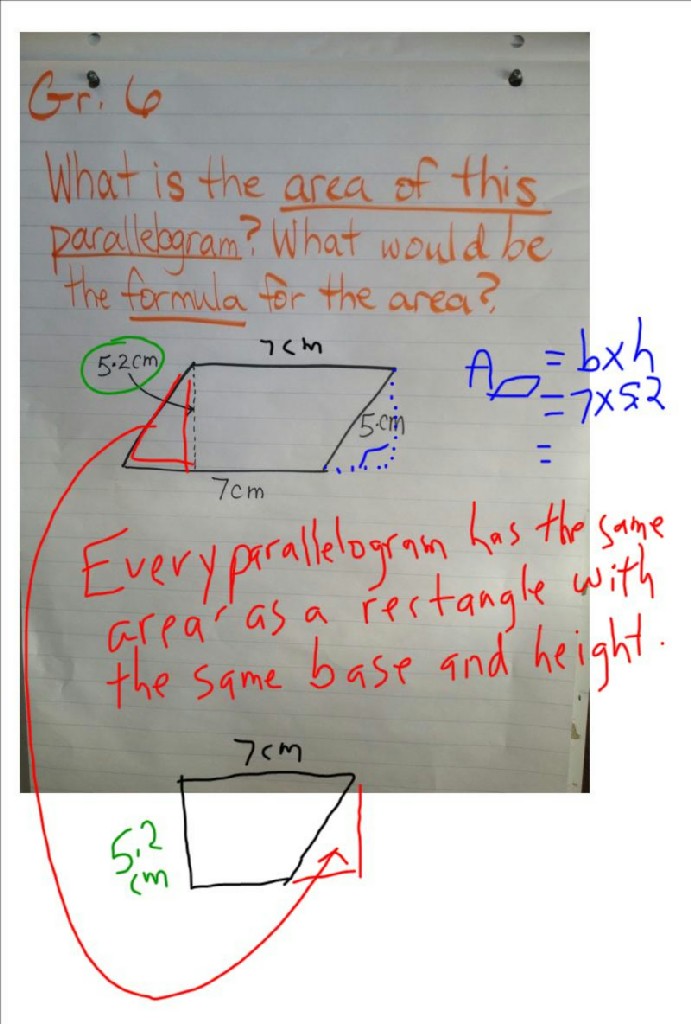 Gr. 6
What is the area of this
parallelogram? What would be
the formula for the area?
7cm
5.2cm
5.cm
7cm
A = bxh
= 7x5.2
=
Every parallelogram has the same
area as a rectangle with
the same base and height.
7cm
5.2
cm